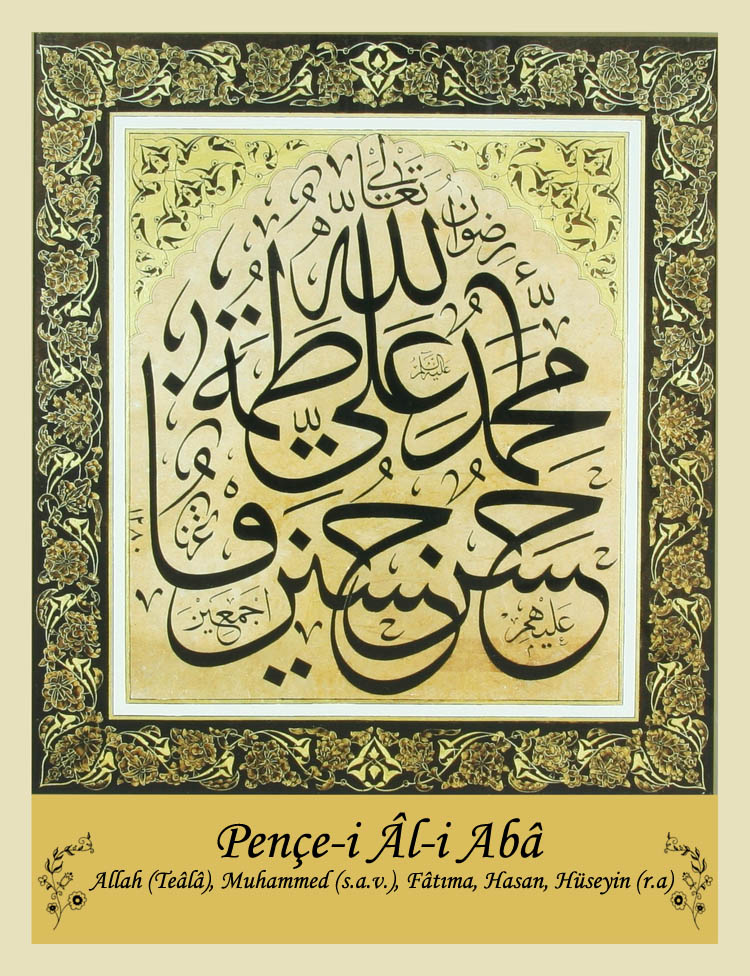 رضوان الله تعالى
محمد علي فاطمة
عليه السلام
حسن حسين
عليهم اجمعين
١٢٨٠
Pençe-i Âl-i Abâ
Allah (Teâlâ), Muhammed (s.a.v.), Fâtıma, Hasan, Hüseyin (r.a)